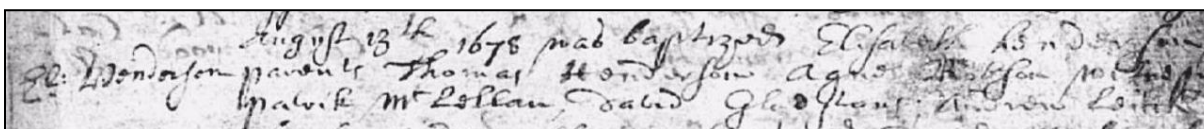 August 13th 1678 was baptized Elisabeth henderson
El: Henderson parents Thomas Henderson Agnes Robson witness
patrik McLellan, david Gladstans, Andrew Leitch